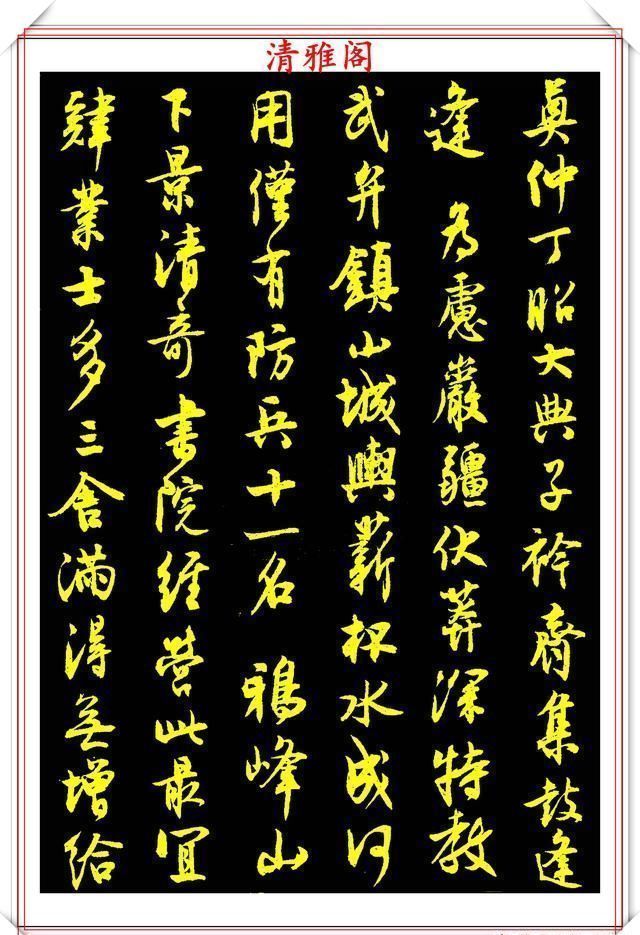 清雅阁
奠仲丁昭大典子衿齊集鼓逢
逢 為慮嚴疆伏莽深特教
武弁鎮山城輿薪杯水成何
用僅有防兵十一名 鴉峰山
下景清奇書院經營此最宜
肄業士多三舍滿得無增給